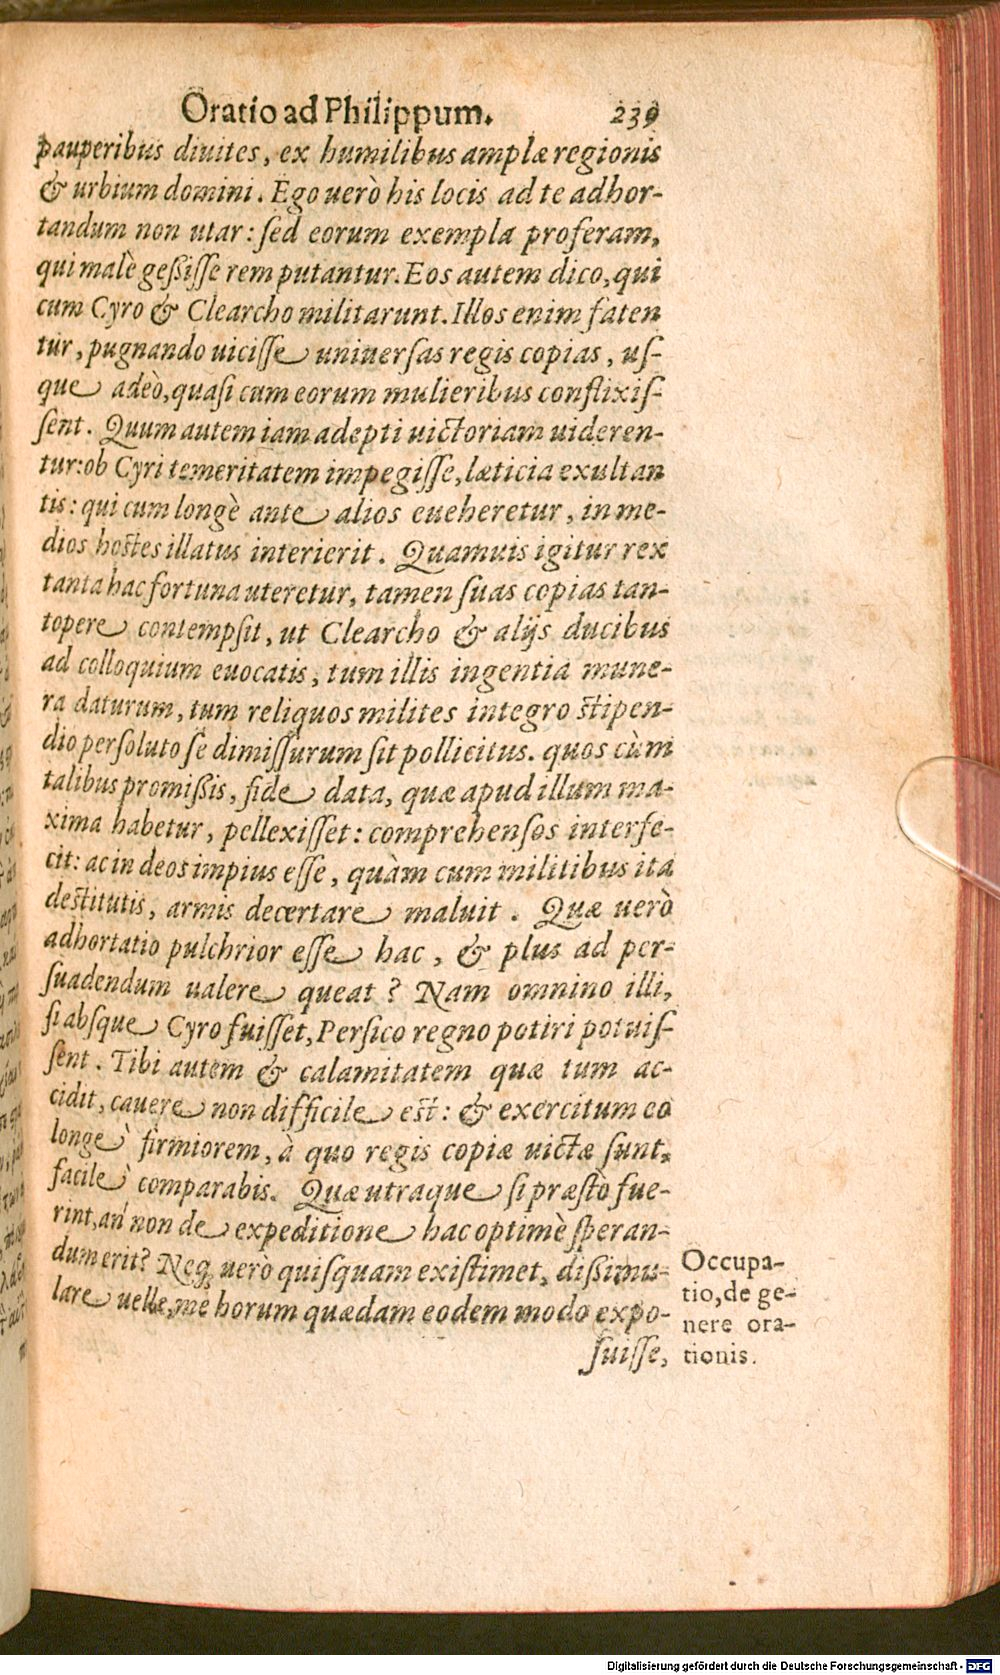 Oratio ad Philippum. 239
pauperibus diuites, ex humilibus amplæ regionis
& urbium domini. Ego uerò his locis ad te adhor-
tandum non utar: sed eorum exempla proferam,
qui malè geßisse rem putantur. Eos autem dico, qui
cum Cyro & Clearcho militarunt. Illos enim faten
tur, pugnando uicisse uniuersas regis copias, us-
que adeò, quasi cum eorum mulieribus conflixis-
sent. Quum autem iam adepti uictoriam uideren-
tur: ob Cyri temeritatem impegisse, læticia exultan
tis: qui cum longè ante alios eueheretur, in me-
dios hostes illatus interierit. Quamuis igitur rex
tanta hac fortuna uteretur, tamen suas copias tan-
topere contempsit, ut Clearcho & alijs ducibus
ad colloquium euocatis, tum illis ingentia mune-
ra daturum, tum reliquos milites integro stipen-
dio persoluto se dimissurum sit pollicitus. quos cùm
talibus promißis, fide data, quæ apud illum ma-
xima habetur, pellexisset: comprehensos interfe-
cit: ac in deos impius esse, quàm cum militibus ita
destitutis, armis decertare maluit. Quæ uerò
adhortatio pulchrior esse hac, & plus ad per-
suadendum ualere queat? Nam omnino illi,
si absque Cyro fuisset, Persico regno potiri potuis-
sent. Tibi autem & calamitatem quæ tum ac-
cidit, cauere non difficile est: & exercitum eo
longè firmiorem, à quo regis copiæ uictæ sunt,
facilè comparabis. Quæ utraque si præstò fue-
rint, an non de expeditione hac optimè speran-
dum erit? Neq; uerò quisquam existimet, dißimu-
lare uelle, me horum quædam eodem modo expo-
suisse,
Occupa-
tio, de ge-
nere ora-
tionis.
Digitalisierung gefördert durch die Deutsche Forschungsgemeinschaft - DFG